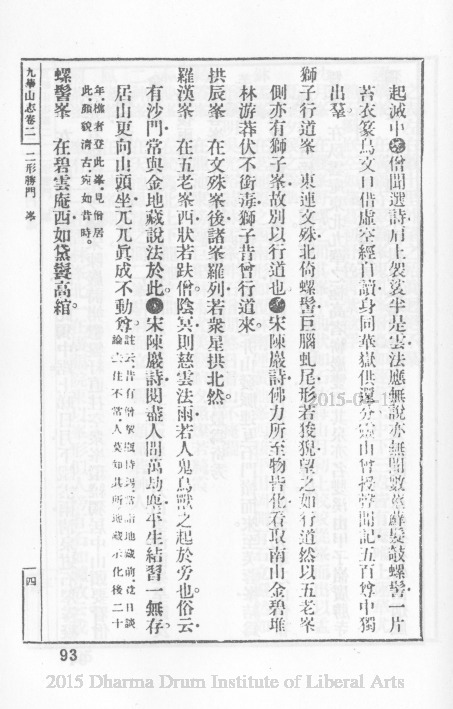 起滅中。僧聞選詩肩上袈裟半是雲法應無說亦無聞數莖蘚髮敲螺髻一片
苔衣篆鳥文口借虛空經自讀身同華嶽供誰分靈山曾授 聞記五百尊中獨
出羣。
獅子行道峯 東連文殊北倚螺髻巨腦虬尾形若狻猊望之如行道然以五老峯
側亦有獅子峯故別以行道也。宋陳巖詩佛力所至物皆化看取南山金碧堆
林游莽伏不銜毒獅子昔曾行道來。
拱辰峯 在文殊峯後諸峯羅列若衆星拱北然。
羅漢峯 在五老峯西狀若趺僧陰冥則慈雲法雨若人鬼鳥獸之起於旁也俗云
有沙門常與金地藏說法於此。宋陳巖詩閱盡人間萬劫塵平生結習一無存。
居山更向山頭坐兀兀眞成不動尊。註云昔有僧 瓶持錫常詣地藏前竟日談
論去住不常人莫知其所地藏示化後二十
年樵者登此峯見僧居
此顏貌清古宛如昔時。
螺髻峯 在碧雲庵西如黛鬟高綰。
九華山志卷二 二形勝門 峯
一四
93
2015-04-1
2015 Dharma Drum Institute of Liberal Arts